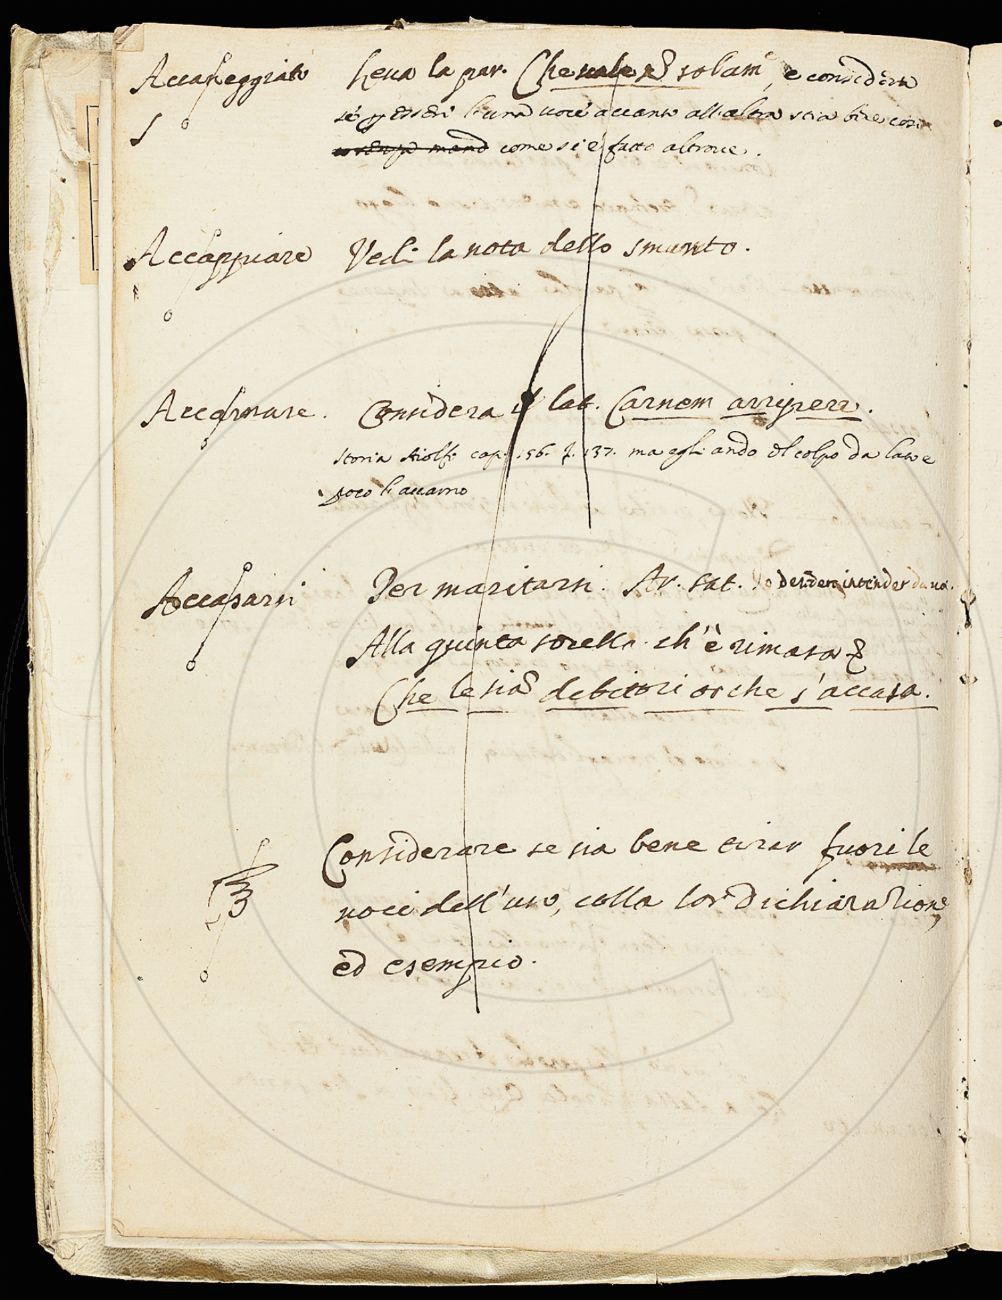 Accaneggiato leva la par. Che vale pō solam.e, e considera
se p essere l'una voce accanto all'altra stia bene così
o senza mand come si è fatto altrove.
Accappiare Vedi la nota dello smunto.
Accarnare. Considera il lat. Carnem arripere.
Storia Aiolf. cap. 156. f. 137. ma egli andò 'l colpo da lato e
poco l'accarnò
Accasarsi Per maritarsi. Ar. sat. Io desidero intender da voi.
Alla quinta sorella ch'è rimasa
Che le siā debitori or che s'accasa.
Considerare se sia bene tirar fuori le
voci dell'uso, colla lor dichiarazione,
ed esempio.